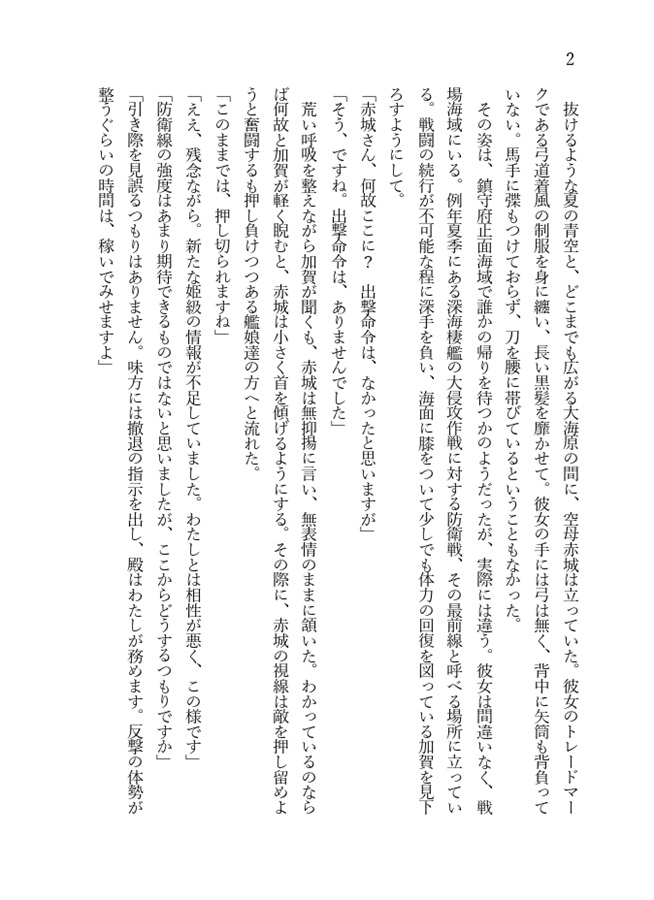 2
抜けるような夏の青空と、どこまでも広がる大海原の間に、空母赤城は立っていた。彼女のトレードマー
クである弓道着風の制服を身に纏い、長い黒髪を靡かせて。彼女の手には弓は無く、背中に矢筒も背負って
いない。馬手に弽もつけておらず、刀を腰に帯びているということもなかった。
その姿は、鎮守府正面海域で誰かの帰りを待つかのようだったが、実際には違う。彼女は間違いなく、戦
場海域にいる。例年夏季にある深海棲艦の大侵攻作戦に対する防衛戦、その最前線と呼べる場所に立ってい
る。戦闘の続行が不可能な程に深手を負い、海面に膝をついて少しでも体力の回復を図っている加賀を見下
ろすようにして。
「赤城さん、何故ここに？　出撃命令は、なかったと思いますが」
「そう、ですね。出撃命令は、ありませんでした」
荒い呼吸を整えながら加賀が聞くも、赤城は無抑揚に言い、無表情のままに頷いた。わかっているのなら
ば何故と加賀が軽く睨むと、赤城は小さく首を傾げるようにする。その際に、赤城の視線は敵を押し留めよ
うと奮闘するも押し負けつつある艦娘達の方へと流れた。
「このままでは、押し切られますね」
「ええ、残念ながら。新たな姫級の情報が不足していました。わたしとは相性が悪く、この様です」
「防衛線の強度はあまり期待できるものではないと思いましたが、ここからどうするつもりですか」
「引き際を見誤るつもりはありません。味方には撤退の指示を出し、殿はわたしが務めます。反撃の体勢が
整うぐらいの時間は、稼いでみせますよ」